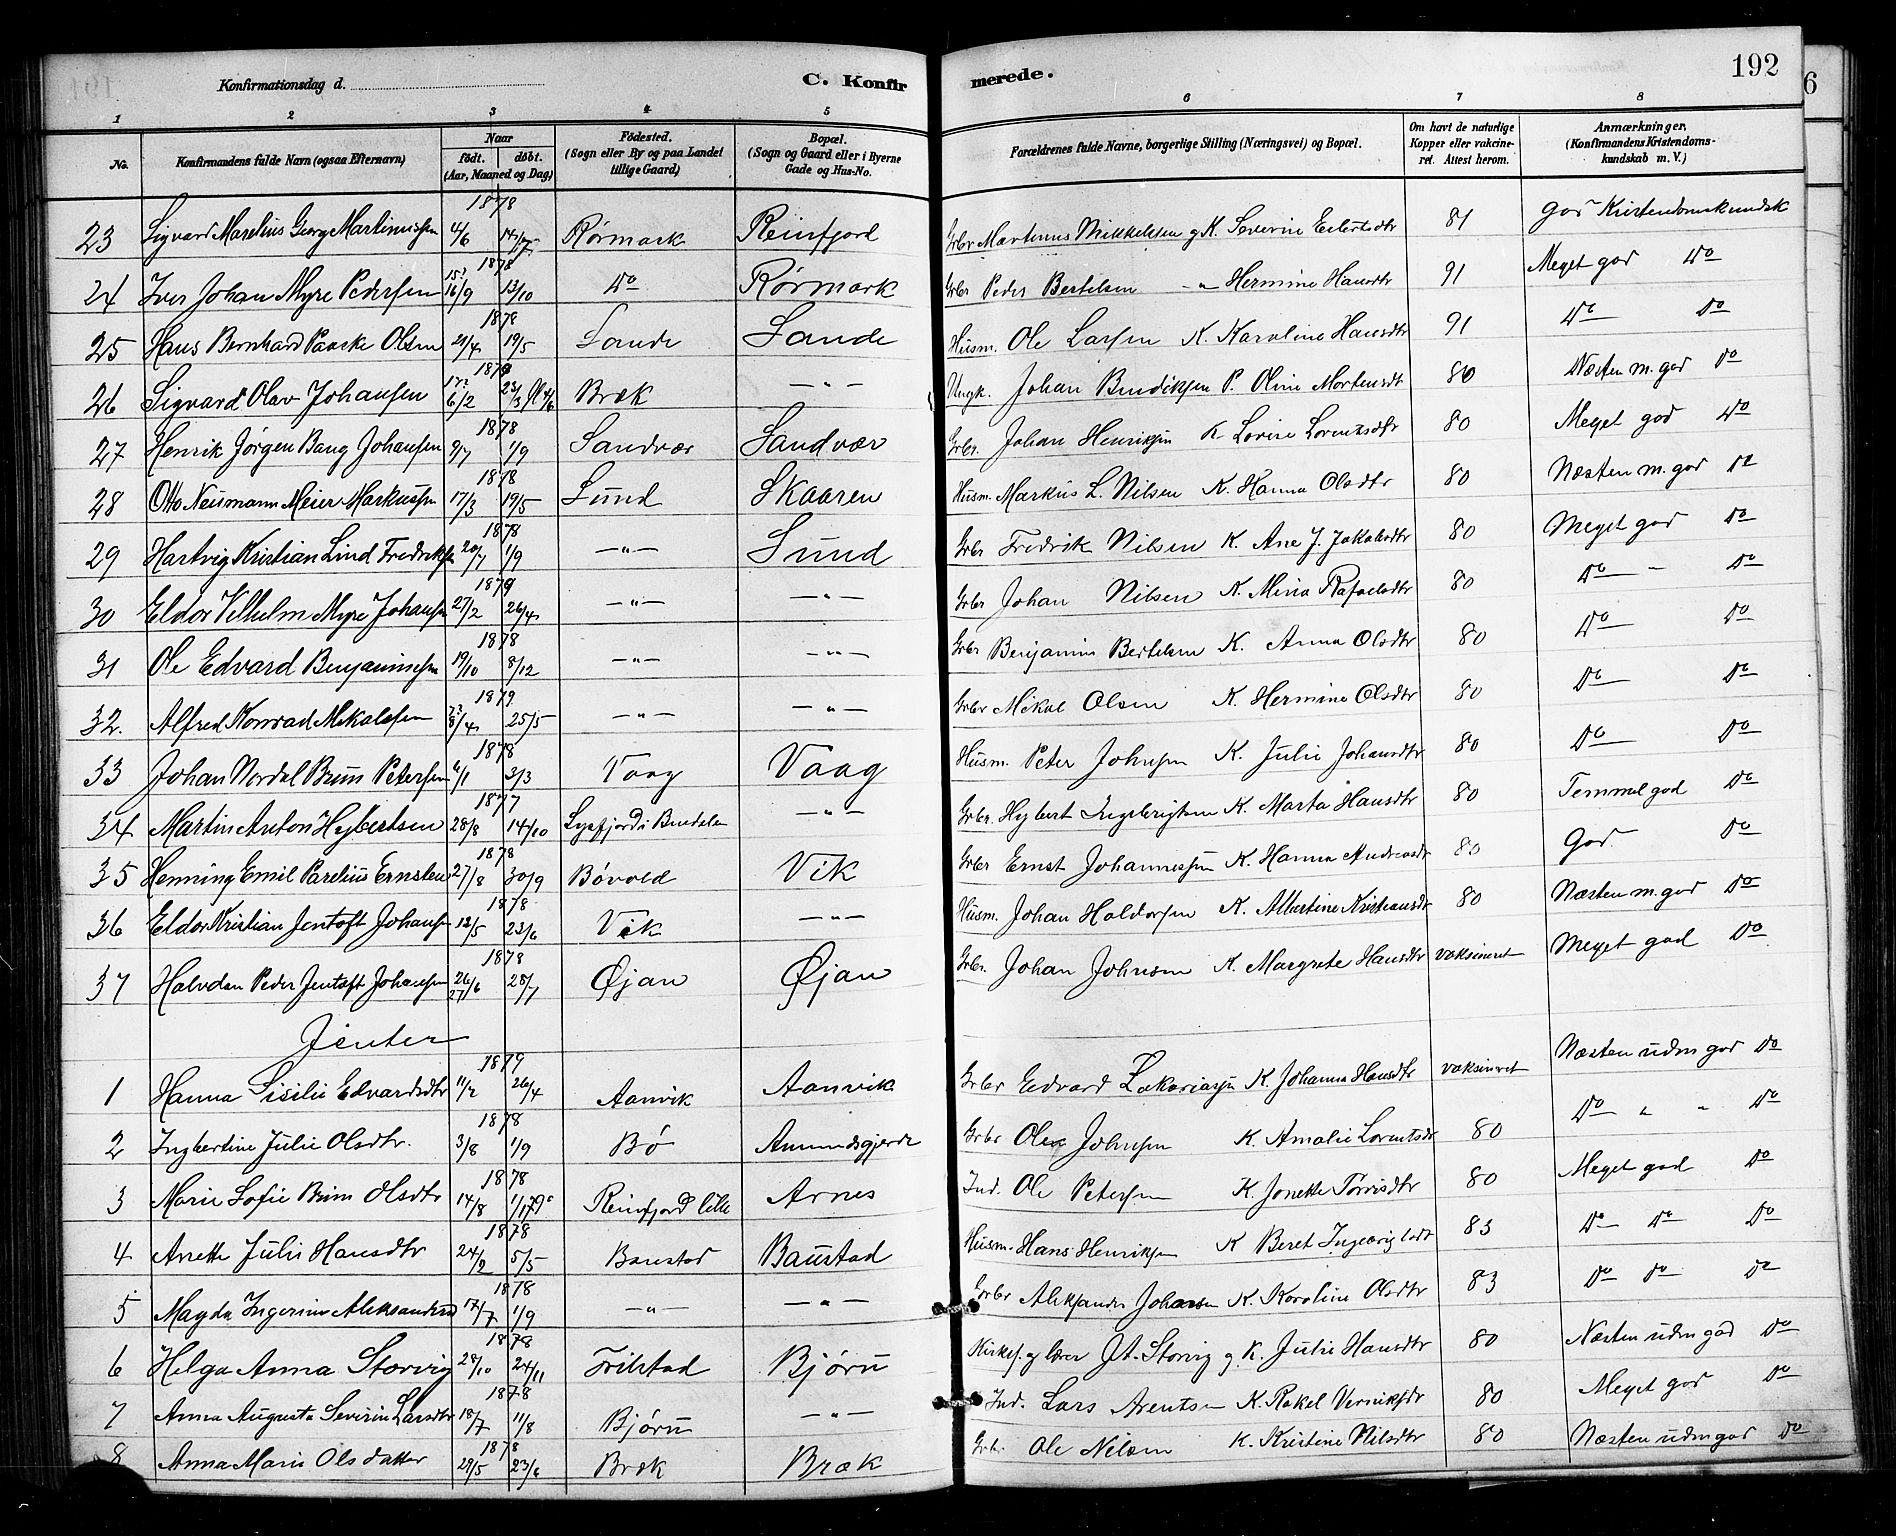 Konfirmationsdag d. C. Konfirmerede. 192
1 2 3 4 5 6 7 8
No. Konfirmandens fulde Navn (ogsaa Efternavn) Naar født. døbt. (Aar, Maaned og Dag) Fødested. (Sogn eller By og paa Landet tillige Gaard) Bopæl. (Sogn og Gaard eller i Byerne Gade og Hus-No. Forældrenes fulde Navne, borgerlige Stilling (Næringsvei) og Bopæl. Om havt de naturlige Kopper eller vakcineret. Attest herom. Anmærkninger. (Konfirmandens Kristendomskundskab m. V.)
1878
23 Sigvard Marelius Georg Martinussen 4/6 14/7 Rørmark Reinfjord Grbr Martinus Mikkelsen g K. Severine Eilertsdtr 81 god Kristendomskundsk
1878
24 Iver Johan Myre Pedersen 16/9 13/10 Do Rørmark Grbr Peder Bertelsen -"- Hermine Hansdtr 91 Meget god Do
1878
25 Hans Bernhard Paaske Olsen 21/4 19/5 Sande Sande Husm. Ole Larsen K. Karoline Hansdtr 91 Do Do
1879
26 Sigvard Olav Johansen 6/2 23/3 Bræk -"- Ungk. Johan Bendiksen P. Oline Mortensdt 80 Næsten m. god Do
1878
27 Henrik Jørgen Bang Johansen 9/7 1/9 Sandvær Sandvær Grbr. Johan Henriksen K Lovise Lorentsdtr 80 Meget god Do
1878
28 Otto Neumann Meier Markussen 17/3 19/5 Sund Skaaren Husm. Markus L. Nilsen K. Hanna Olsdtr 80 Næsten m. god Do
1878
29 Hartvig Kristian Lind Fredriksen 20/7 1/9 -"- Sund Grbr Fredrik Nilsen K. Ane J. Jakobsdtr 80 Meget god Do
1879
30 Eldor Vilhelm Myre Johansen 27/2 26/4 -"- -"- Grbr Johan Nilsen K. Mina Rafaelsdtr 80 Do " Do
1878
31 Ole Edvard Benjaminsen 19/10 8/12 -"- -"- Grbr Benjamin Bertelsen K. Anna Olsdtr 80 Do Do
1879
32. Alfred Konrad Mikalsen 8/4 25/5 -"- -"- Grbr Mikal Olsen K. Hermine Olsdtr 80 Do Do
1878
33 Johan Nordal Brun Petersen 6/1 3/3 Vaag Vaag Husm. Peter Johnsen K. Julie Johansdtr 80 Do Do
1877
34 Martin Anton Hybertsen 28/8 14/10 Lysfjord i Bindalen -"- Grbr. Hybert Ingebrigtsen K. Marta Hansdtr 80 Temmel god Do
1878
35 Henning Emil Parelius Ernstsen 27/8 30/9 Bøvold Vik Grbr Ernst Johannessen K. Hanna Andreasdr 80 God. Do
1878
36 Eldor Kristian Jentoft Johansen 12/5 23/6 Vik -"- Husm. Johan Haldorsen K. Albertine Kristiansdtr 80 Næsten m. god Do
1878
37 Halvdan Peder Jentoft Johansen 26/6 28/7 Øjan Øjan Grbr. Johan Johnsen K. Margrete Hansdtr vaksineret Meget god Do
Jenter
1879
1 Hanna Sisilie Edvardsdtr 11/2 26/4 Aanvik Aanvik Grbr Edvard Zakariassen K. Johanna Hansdtr vaksineret Næsten udm god Do
1878
2 Ingbertine Julie Olsdtr. 3/8 1/9 Bø Amundsgjerde Grbr Ole Johnsen K. Amalie Lorentsdr 80 Do " " Do
1878
3 Marie Sofie Brun Olsdtr 14/8 Reinfjord lille Arnes Ind. Ole Petersen K. Jonette Torrisdtr 80 Meget god Do
1878
4 Anette Julie Hansdtr 24/2 5/5 Baustad Baustad Husm. Hans Henriksen K Beret Ingebrigtsdt 83 Do Do Do
1878
5 Magda Ingerine Aleksandersd 17/7 1/9 -"- -"- Grbr Aleksander Johansen K. Karoline Olsdtr 83 Do Do Do
1878
6 Helga Anna Storvig 28/10 24/11 Frilstad Bjørn Kirkes. og lærer J. A. Storvig g. K. Julie Hansdtr 80 Næsten udm god Do
1878
7 Anna Augusta Severin Larsdtr 18/7 11/8 Bjørn -"- Ind. Lars Arentsen K. Rakel Verniksdr 80 Meget god Do
1878
8 Anna Marie Olsdatter 29/5 23/6 Bræk Bræk Grbr. Ole Nilsen K. Kristine Nilsdtr 80 Næsten udm god Do